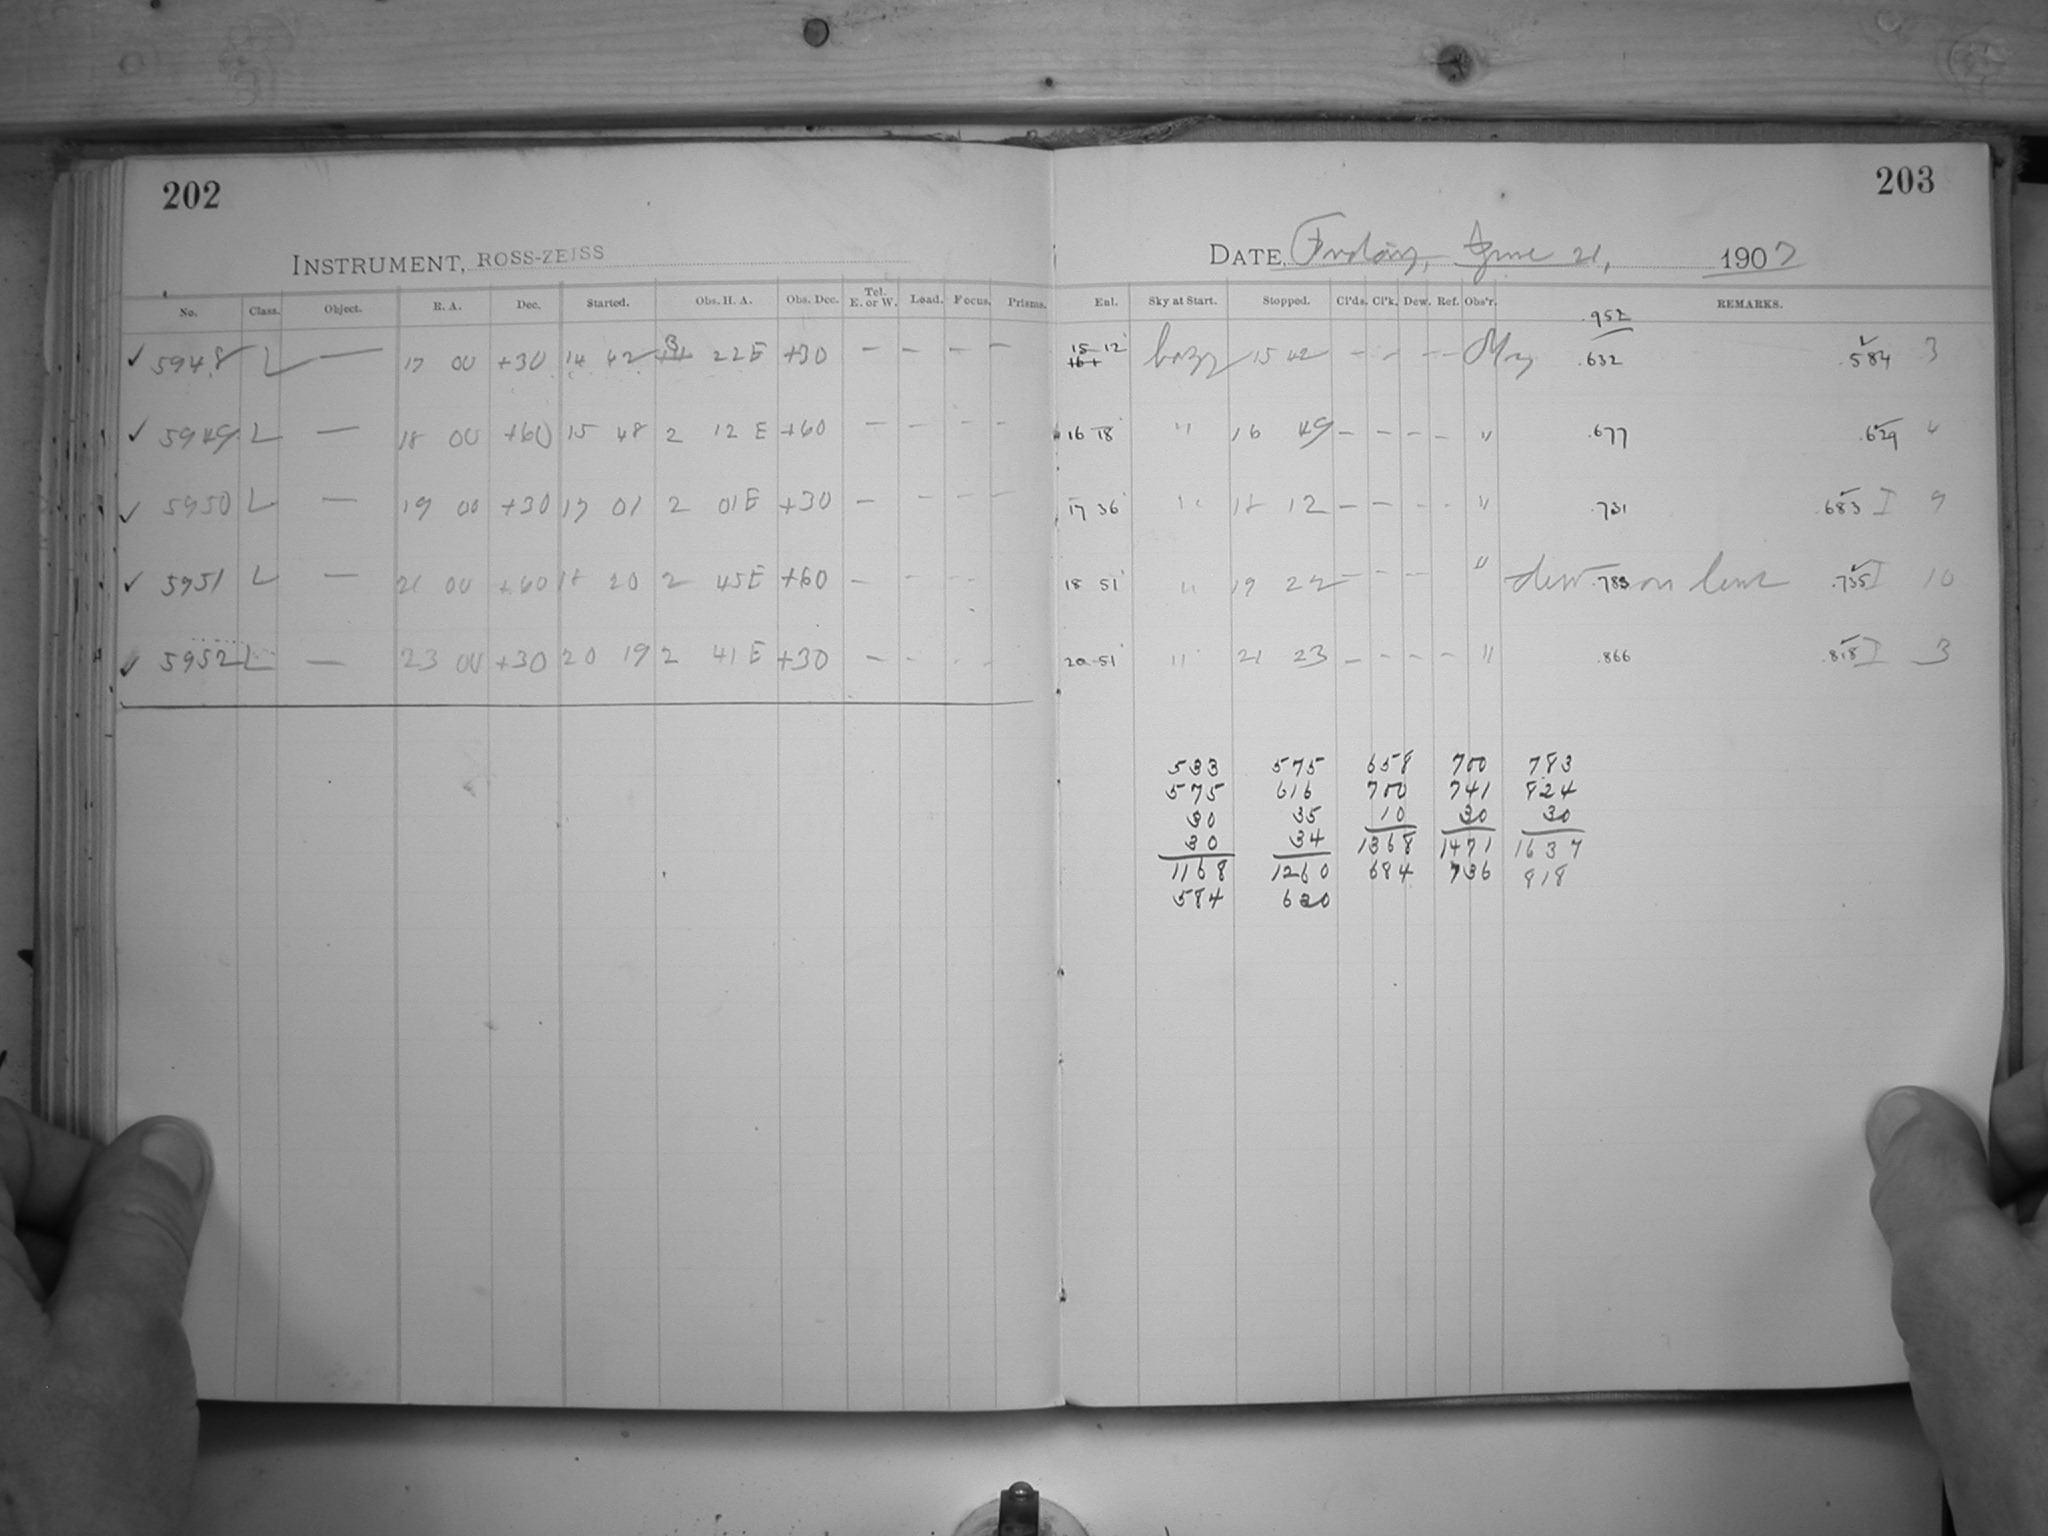 202
203
INSTRUMENT, ROSS-ZEISS
DATE, Friday, June 21, 1907
No. Class. Object. R. A. Dec. Started. Obs. H. A. Obs. Dec. Tel. E. or W. Load. Focus. Prisms. Enl. Sky at Start. Stopped. Cl'ds. Cl'k. Dew. Ref. Obs'r. REMARKS.
.952
✓ 5948 L — 17 00 +30 14 42 3 22 E +30 — — — — 15 12 hazy 15 42 — — — — May .632 .584 3
✓ 5949 L — 18 00 +60 15 48 2 12 E +60 — — — — 16 18 " 16 49 — — — — " .677 .629 4
✓ 5950 L — 19 00 +30 17 01 2 01 E +30 — — — — 17 36 " 18 12 — — — — " .731 .683 I 9
✓ 5951 L — 21 00 +60 18 20 2 45 E +60 — — — — 18 51 " 19 22 — — — " dew on lens .783 .735 I 10
✓ 5952 L — 23 00 +30 20 19 2 41 E +30 — — — — 20 51 " 21 23 — — — — " .866 .818 I 3
533 575 658 700 783
575 616 700 741 824
30 35 10 30 30
30 34 1368 1471 1637
1168 1260 684 736 818
584 630